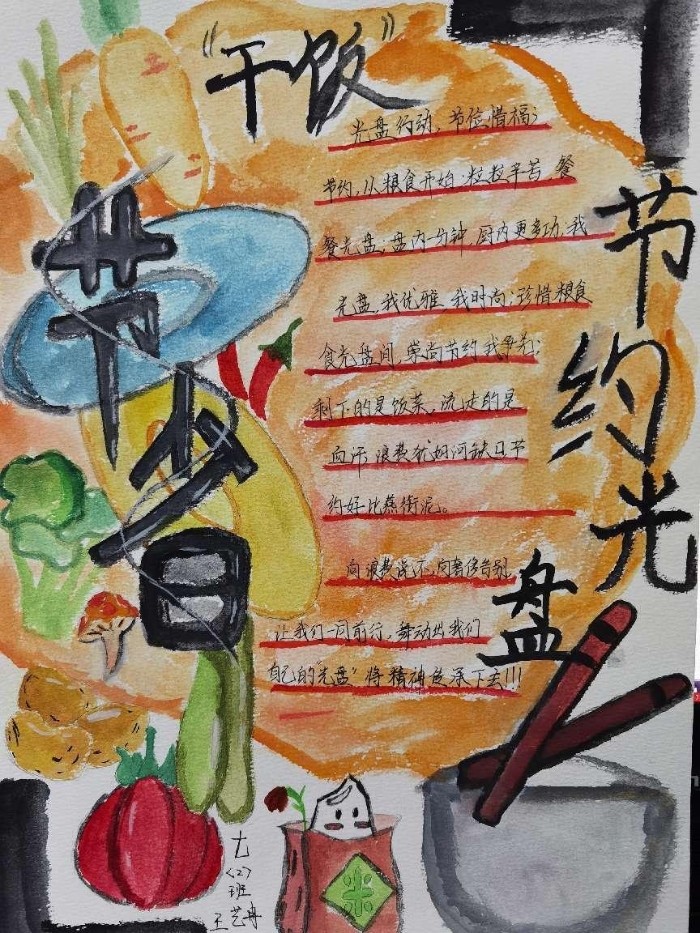 “干饭”
节省
节约光盘
光盘行动，节俭惜福；
节约，从粮食开始；粒粒辛苦，餐
餐光盘；盘内一分钟，厨内更多功；我
光盘，我优雅，我时尚；珍惜粮食
食光盘间，崇尚节约我争先；
剩下的是饭菜，流走的是
血汗，浪费犹如河缺口，节
约好比燕衔泥。
向浪费说不，向奢侈告别
让我们一同前行，舞动出我们
自己的“光盘”将精神传承下去!!!
米
七
(2)
班
王艺冉